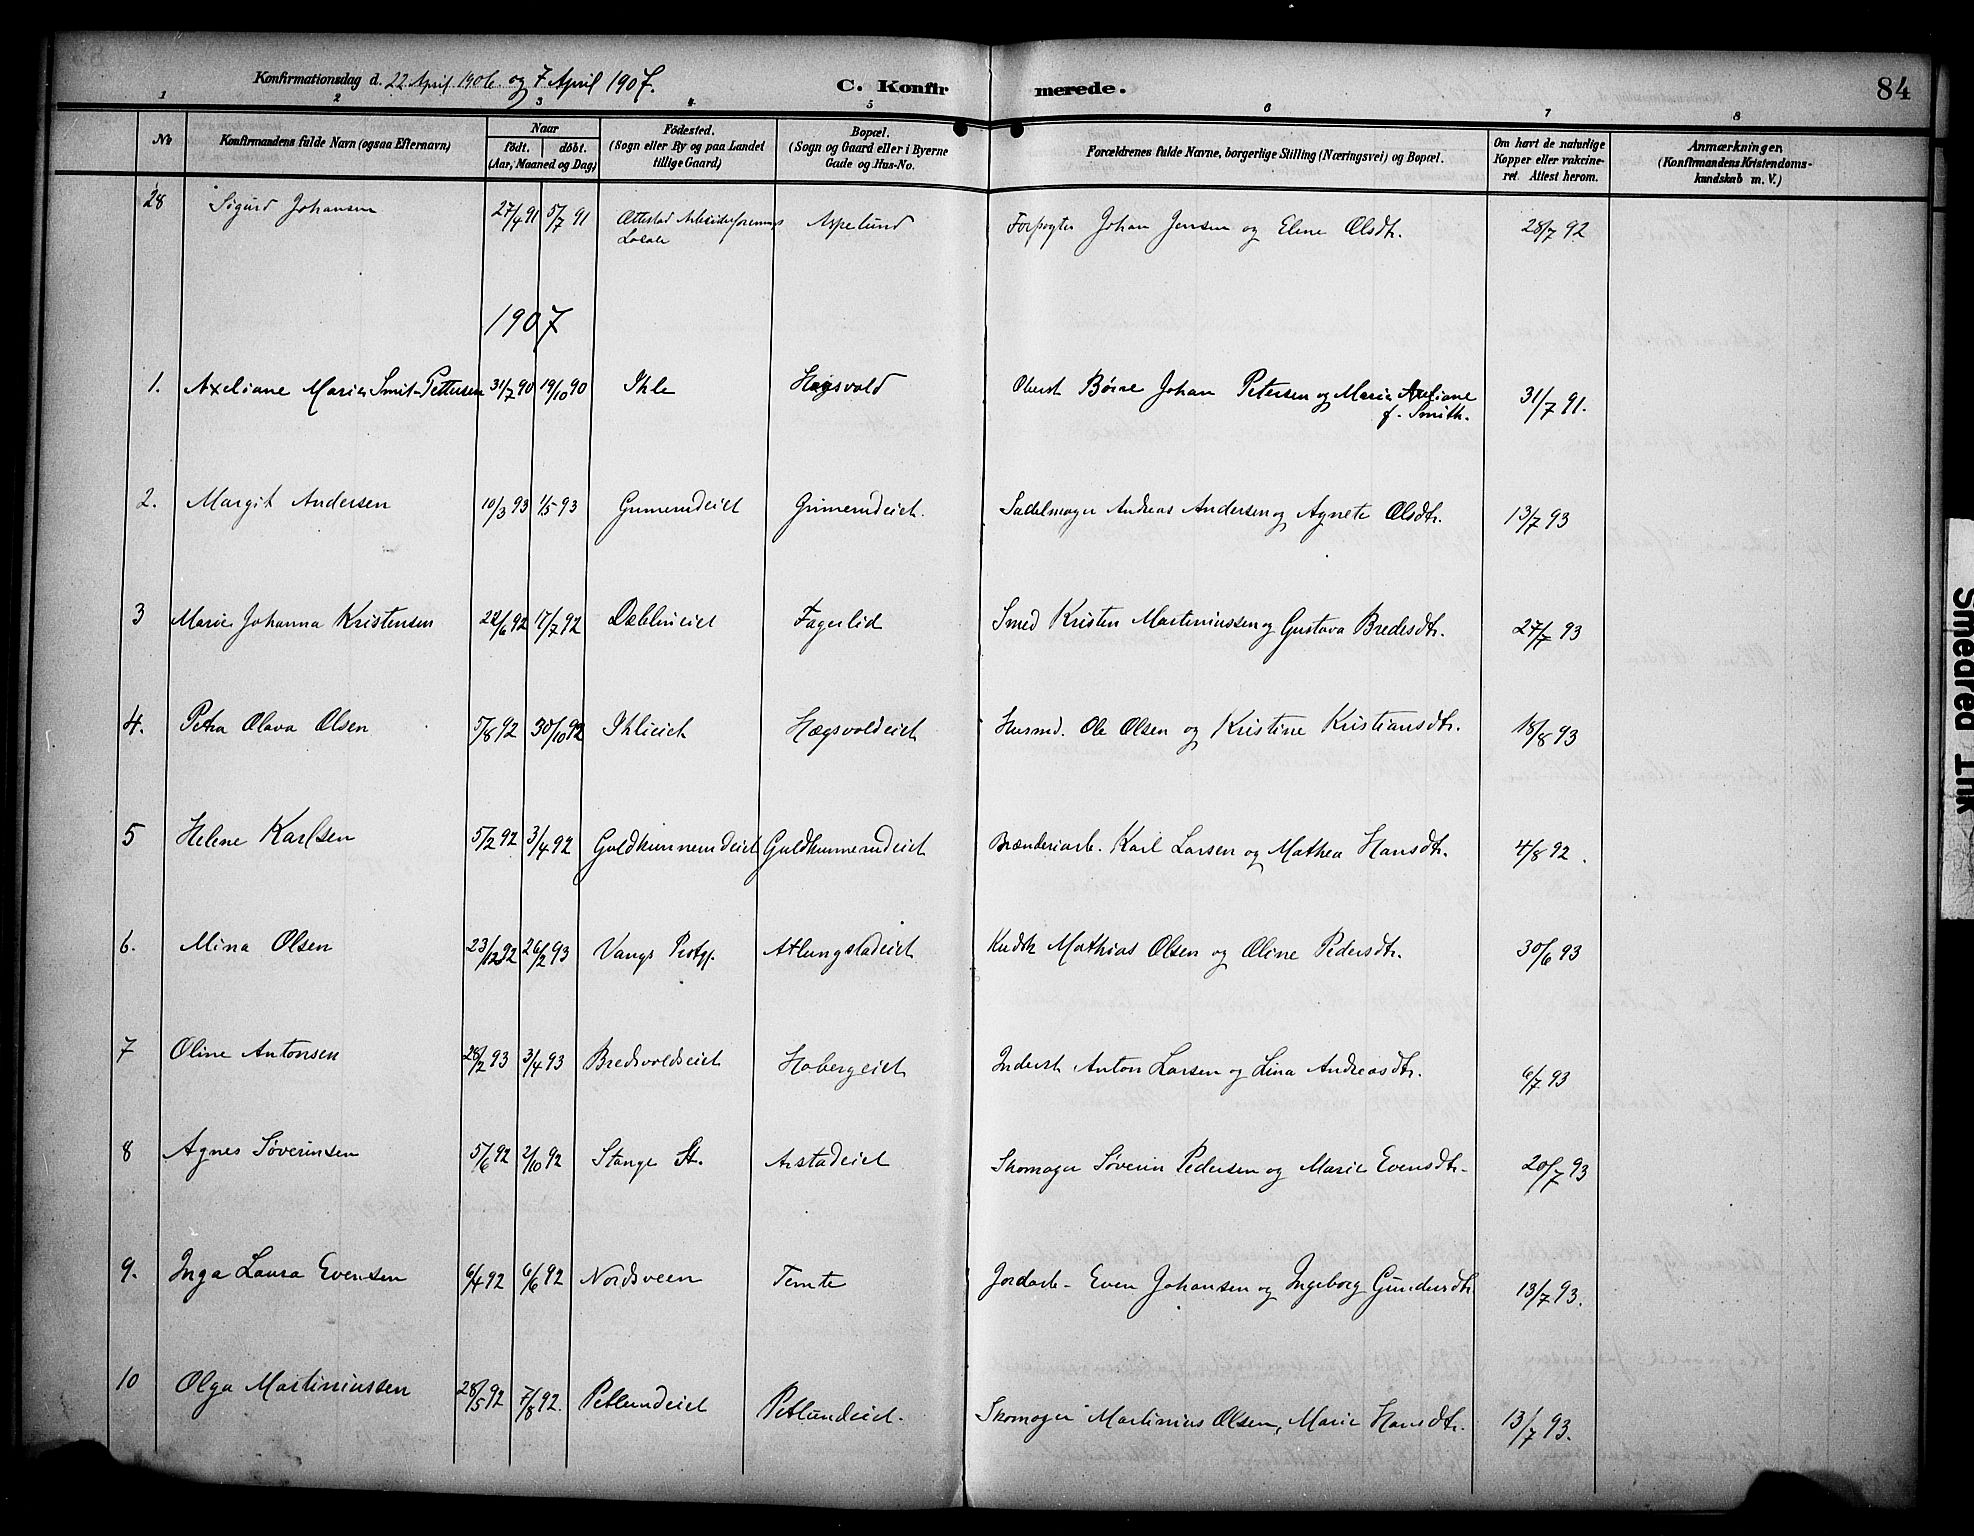 Konfirmationsdag d. 22 April 1906 og 7 April 1907. C. Konfirmerede. 84
1 2 3 4 5 6 7 8
No Konfirmandens fulde Navn (ogsaa Efternavn) Naar født. døbt. (Aar, Maaned og Dag) Fødested. (Sogn eller By og paa Landet tillige Gaard) Bopæl. (Sogn og Gaard eller i Byerne Gade og Hus-No. Forældrenes fulde Navne, borgerlige Stilling (Næringsvei) og Bopæl. Om havt de naturlige Kopper eller vakcineret. Attest herom. Anmærkninger (Konfirmandens Kristendomskundskab m. V.)
28 Sigurd Johansen 27/4 91 5/7 91 Ottestad Arbeiderforenings Locale Aspelund Forpagter Johan Jensen og Eline Olsdtr. 28/7 92
1907
1. Axeliane Marie Smit-Pettersen 31/7 90 19/10 90 Ihle Hægsvold Oberst Börre Johan Petersen og Marie Axeliane f. Smith. 31/7 91.
2. Margit Andersen 10/3 93 1/5 93 Grimerudeiet Grimerudeiet. Sadelmager Andreas Andersen og Agnete Olsdtr. 13/7 93
3 Marie Johanna Kristensen 22/6 92 17/7 92 Dæblineiet Fagerlid Smed Kristen Martiniussen og Gustava Bredesdtr. 27/7 93
4. Petra Olava Olsen 5/8 92 30/10 92 Ihleeiet Hægsvoldeiet Husmd. Ole Olsen og Kristine Kristiansdtr. 18/8 93
5 Helene Karlsen 5/2 92 3/4 92 Guldkunnerudeiet Guldkunnerudeiet Brænderiarb. Karl Larsen og Mathea Hansdtr. 4/8 92.
6. Mina Olsen 23/12 92 26/2 93 Vangs Prstgj. Atlungstadeiet Kudsk Mathias Olsen og Oline Pedersdtr. 30/6 93
7 Oline Antonsen 28/2 93 3/4 93 Bredsvoldseiet Hobergeiet Inderst Anton Larsen og Lina Andreasdtr. 6/7 93
8 Agnes Søverinsen 5/6 92 2/10 92 Stange St. Arstadeiet Skomager Søverin Pedersen og Marie Evensdtr. 20/7 93
9. Inga Laura Evensen 6/4 92 6/6 92 Nordsveen Temte Jordarb. Even Johansen og Ingeborg Gundersdtr. 13/7 93.
10 Olga Martiniussen 28/5 92 7/8 92. Petlundeiet Petlundeiet. Skomager Martinius Olsen, Marie Hansdtr. 13/7 93.
Smeared Ink